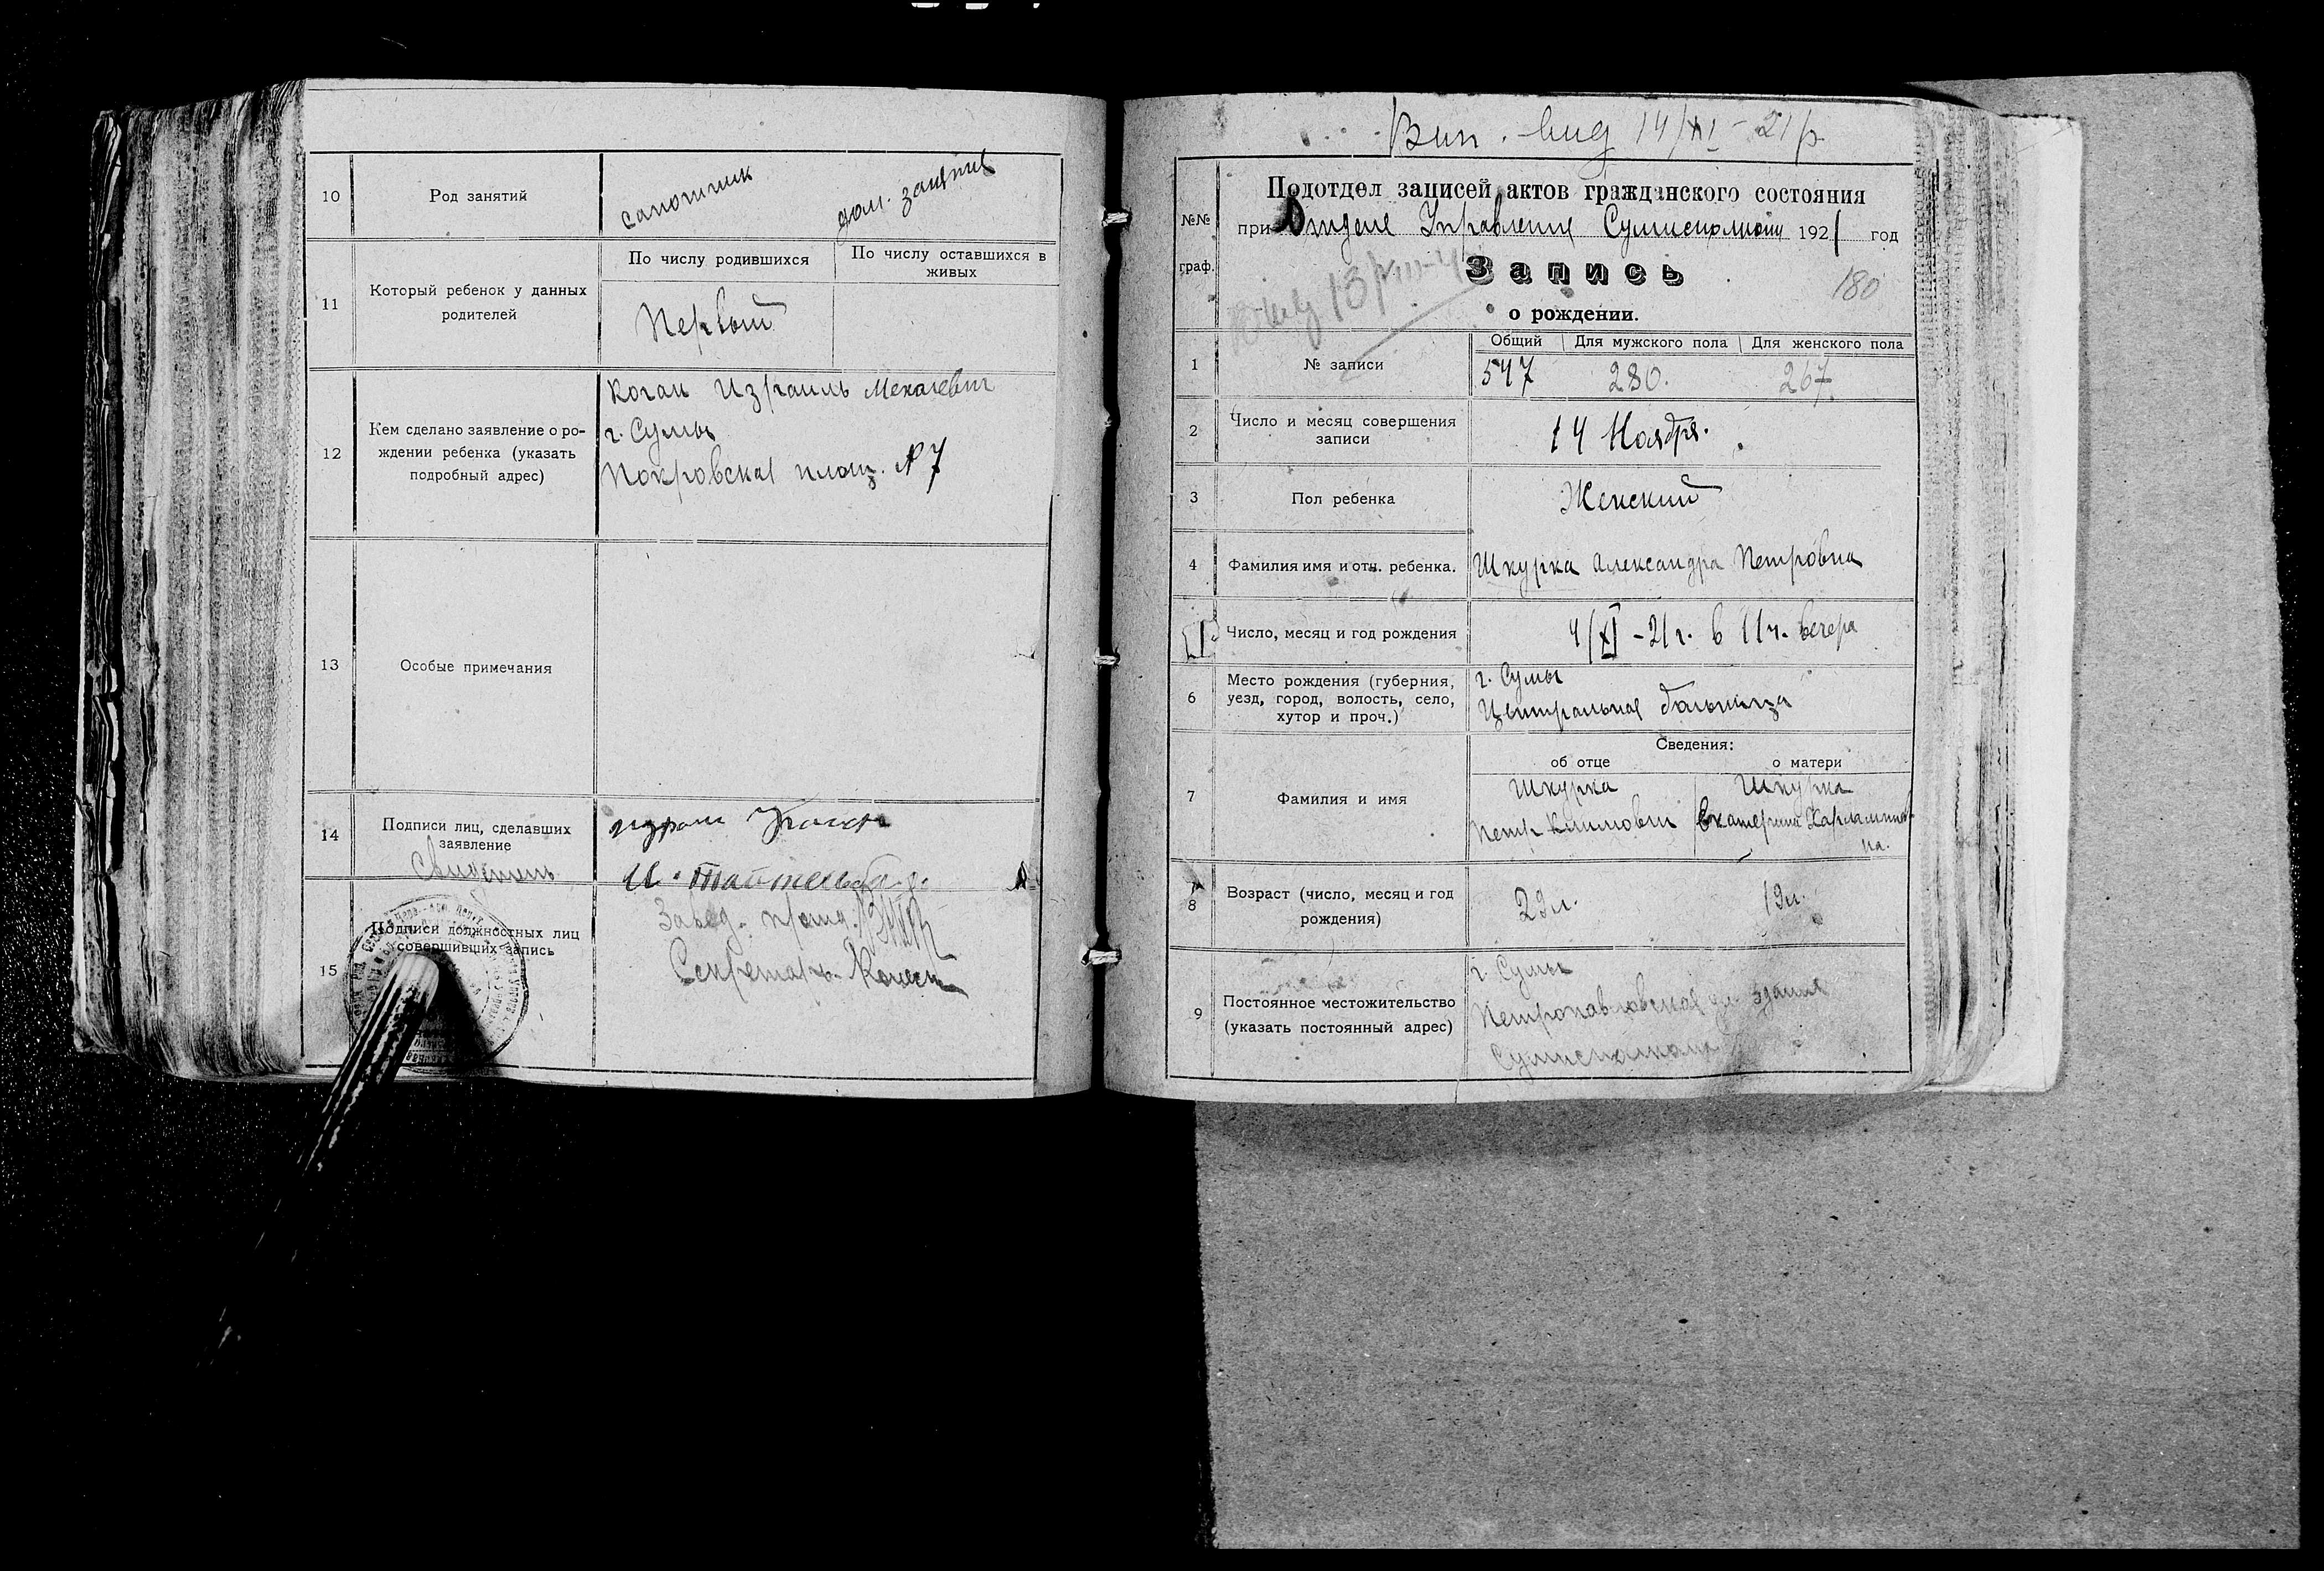 10
Род занятий
сапожник
дом. занятие
11
Который ребенок у данных
родителей
По числу родившихся
По числу оставшихся в
живых
Первый
12
Кем сделано заявление о ро-
ждении ребенка (указать
подробный адрес)
Коган Израиль
г. Сумы
Покровская площ. № 7
13
Особые примечания
14
Подписи лиц, сделавших
заявление
Свидетель
15
Подписи должностных лиц
совершивших запись
Завед.
Секретарь
Вип. 14/XI - 21 р
Подотдел записей актов гражданского состояния
№№
граф.
при Отделе Управления Сумисполкома 1921 год
Запись
180
о рождении.
1
№ записи
Общий
Для мужского пола
Для женского пола
547
280.
267.
2
Число и месяц совершения
записи
14 Ноября.
3
Пол ребенка
Женский
4
Фамилия имя и отч. ребенка.
Шкурка Александра Петровна
Число, месяц и год рождения
4/XI - 21 г. в 11 ч. вечера
6
Место рождения (губерния,
уезд, город, волость, село,
хутор и проч.)
г. Сумы
Центральная больница
Сведения:
об отце
о матери
7
Фамилия и имя
Шкурка
Петр Климович
Шкурка
Екатерина Харлампиев-
на.
8
Возраст (число, месяц и год
рождения)
29 л.
19 л.
9
Постоянное местожительство
(указать постоянный адрес)
г. Сумы
Петропавловская ул. здание
Сумисполкома